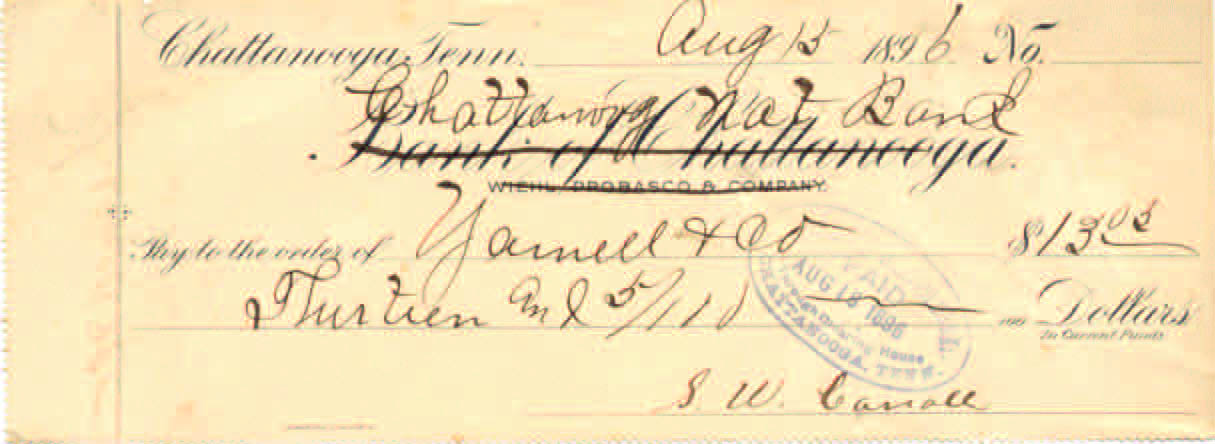 Chattanooga, Tenn. Aug 15 1896 No.
Chattanooga Nat Bank
Bank of Chattanooga.
WIEHL, PROBASCO & COMPANY.
Pay to the order of Yarnell & Co $13 05
Thirteen and 5/100 Dollars
In Current Funds
PAID
AUG 18 1896
Clearing House
CHATTANOOGA, TENN.
S. W. Carroll